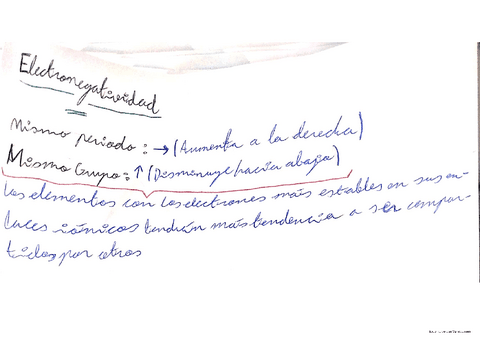 Electronegatividad
Mismo periodo: → (Aumenta a la derecha)
Mismo Grupo: ↑ (Desminuye hacia abajo)
Los elementos con los electrones más estables en sus en-
laces iónicos tendrán más tendencia a ser compar-
tidos por otros